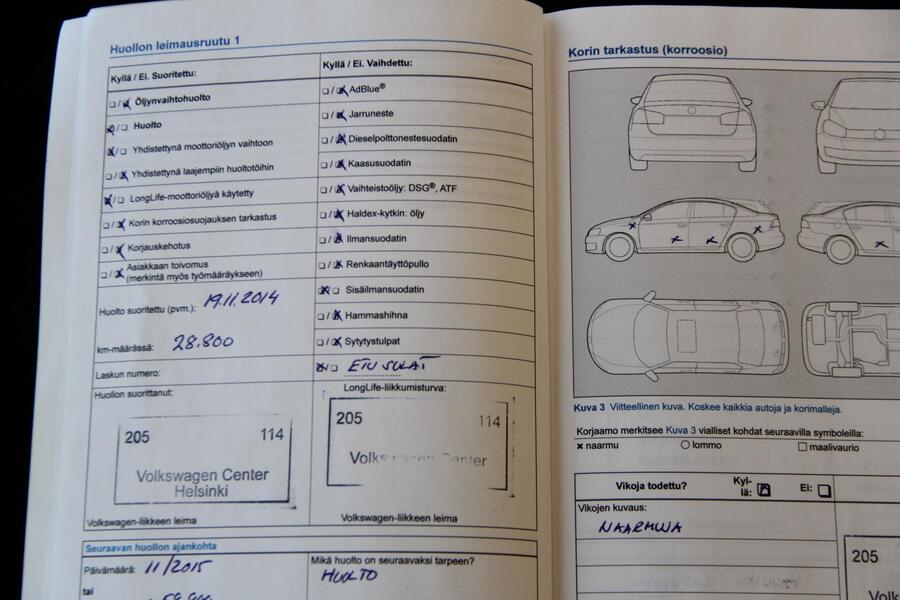 Huollon leimausruutu 1
Kyllä / Ei. Suoritettu:
Öljynvaihtohuolto
Huolto
Yhdistettynä moottoriöljyn vaihtoon
Yhdistettynä laajempiin huoltotöihin
LongLife-moottoriöljyä käytetty
Korin korroosiosuojauksen tarkastus
Korjauskehotus
Asiakkaan toivomus
(merkintä myös työmääräykseen)
Huolto suoritettu (pvm.): 19.11.2014
km-määrässä: 28.800
Laskun numero:
Huollon suorittanut:
205 114
Volkswagen Center
Helsinki
Volkswagen-liikkeen leima
Kyllä / Ei. Vaihdettu:
AdBlue®
Jarruneste
Dieselpolttonestesuodatin
Kaasusuodatin
Vaihteistoöljy: DSG®, ATF
Haldex-kytkin: öljy
Ilmansuodatin
Renkaantäyttöpullo
Sisäilmansuodatin
Hammashihna
Sytytystulpat
ETUSULAT
LongLife-liikkumisturva:
205 114
Volkswagen-liikkeen leima
Seuraavan huollon ajankohta
Päivämäärä: 11/2015
tai
Mikä huolto on seuraavaksi tarpeen?
HUOLTO
Korin tarkastus (korroosio)
Kuva 3 Viitteellinen kuva. Koskee kaikkia autoja ja korimalleja.
Korjaamo merkitsee Kuva 3 vialliset kohdat seuraavilla symboleilla:
× naarmu ○ lommo □ maalivaurio
Vikoja todettu? Kyl-
lä: Ei:
Vikojen kuvaus:
NAARMUJA
205